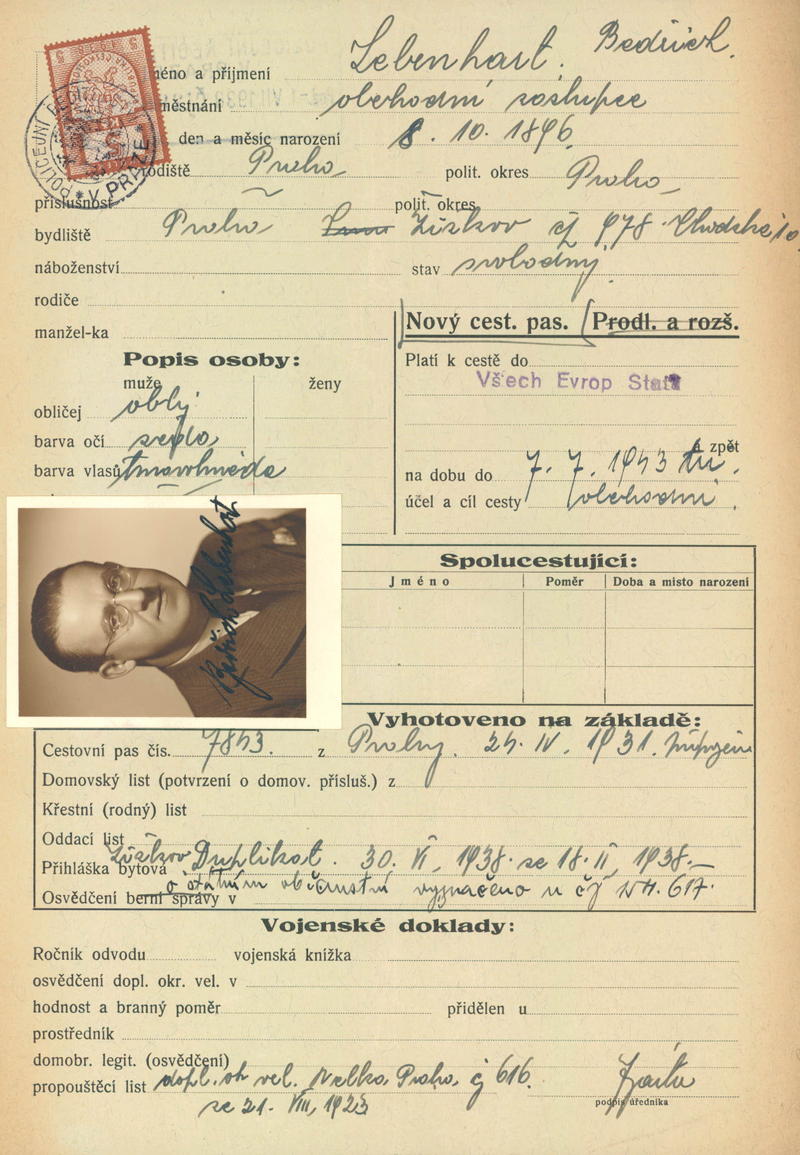 Lebenhart. Bedřich.
méno a příjmení
městnání obchodní zástupce
den a měsíc narození 8. 10. 1896.
rodiště Praha polit. okres Praha
příslušnost polit. okres
bydliště Praha Žižkov čj 978 Chodská 10
náboženství stav svobodný
rodiče
manžel-ka
Nový cest. pas. Prodl. a rozš.
Popis osoby:
Platí k cestě do
muže ženy
Všech Evrop Států
obličej oblý
barva očí
barva vlasů tmavohnědé
a zpět
na dobu do 7. 7. 1943
účel a cíl cesty obchodní.
Bedřich Lebenhart
Spolucestující:
Jméno Poměr Doba a místo narození
Vyhotoveno na základě:
Cestovní pas čís. 7843. z Prahy. IV. 1931.
Domovský list (potvrzení o domov. přísluš.) z
Křestní (rodný) list
Oddací list
Přihláška bytová Žižkov Duplikat. 30. VI. 1938. ze 18. II. 1938.
Osvědčení berní správy v o státním občanství vyznačeno u čj 617.
Vojenské doklady:
Ročník odvodu vojenská knížka
osvědčení dopl. okr. vel. v
hodnost a branný poměr přidělen u
prostředník
domobr. legit. (osvědčení)
propouštěcí list dopl. ok vel. Velká Praha čj 616.
ze 21. VIII. 1923
podpis úředníka
POLICEJNÍ V PRAZE